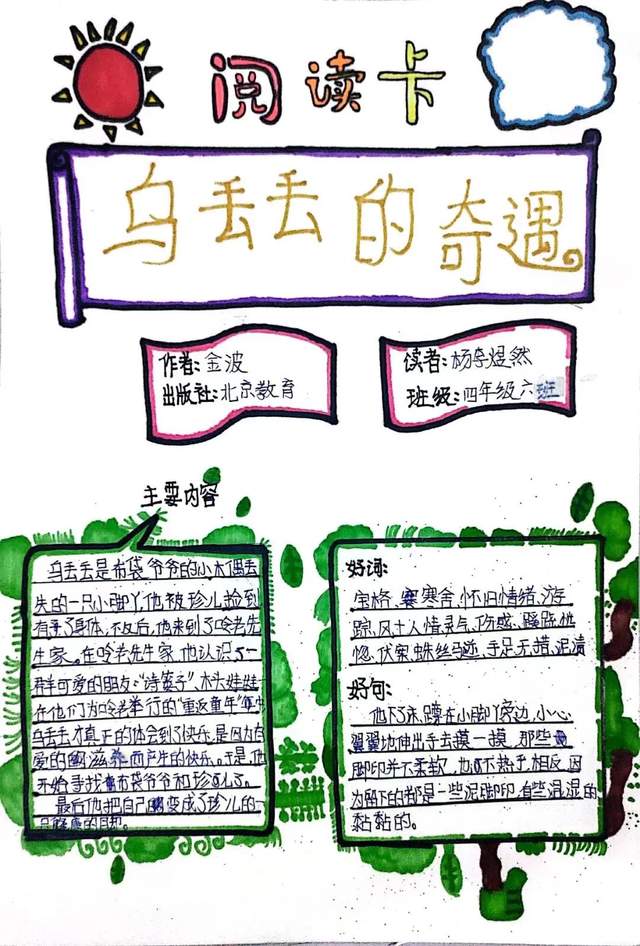 阅读卡
乌丢丢的奇遇
作者:金波
出版社:北京教育
读者:杨李煜然
班级:四年级六班
主要内容
乌丢丢是布袋爷爷的小木偶丢
失的一只小脚丫,他被珍儿捡到
有了身体,不久后,他来到了吟老先
生家。在吟老先生家,他认识了一
群可爱的朋友:“诗篓子”,木头娃娃
在他们为吟老举行的“重返童年”
乌丢丢才真正的体会到了快乐,是因为有
爱的滋养而产生的快乐。于是,他
开始寻找布袋爷爷和珍儿了。
最后他把自己变成了珍儿的一
只健康的
好词:
寒舍,怀旧情绪,游
踪,风土人情,灵气,伤感,蹊跷,恍
惚,伏案,蛛丝马迹,手足无措,泥渍
好句:
他下了床,蹲在小脚丫旁边,小心
翼翼地伸出手去摸一摸,那些
脚印并不柔软,也不热乎,相反,因
为留下的都是一些泥脚印,有些湿湿的
黏黏的。